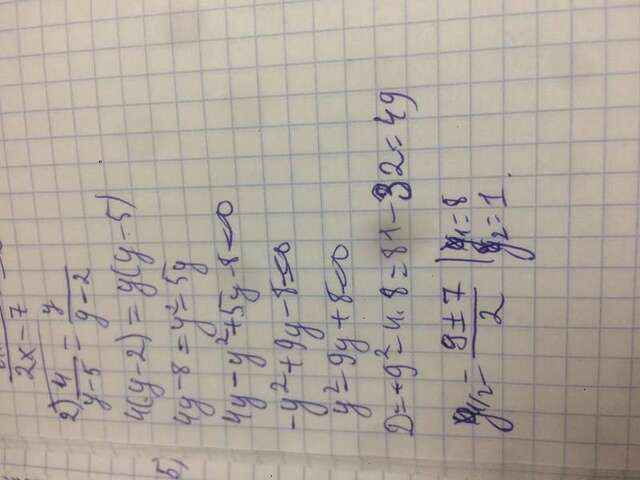 2x-7
2) 4/(y-5) = y/(y-2)
4(y-2) = y(y-5)
5)
4y-8 = y²-5y
4y-y²+5y-8=0
-y²+9y-8=0
y²-9y+8=0
D=-9²-4·8=81-32=49
y1/2 = (9±7)/2 | y1=8
y2=1.